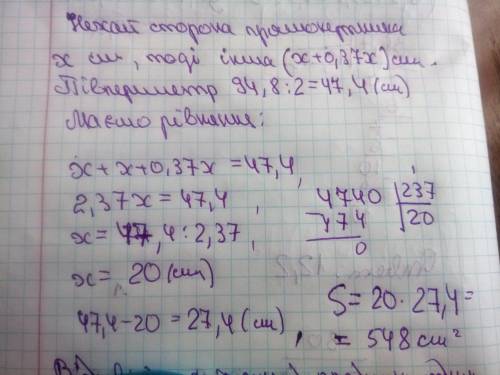 Нехай сторона прямокутника
x см, тоді інша (x+0,37x) см.
Півпериметр 94,8:2=47,4(см)
Маємо рівняння:
x+x+0,37x=47,4,
2,37x=47,4,
x=47,4:2,37,
x=20(см)
47,4-20=27,4(см),
4740 237
-474 20
0
S=20·27,4=
=548см²